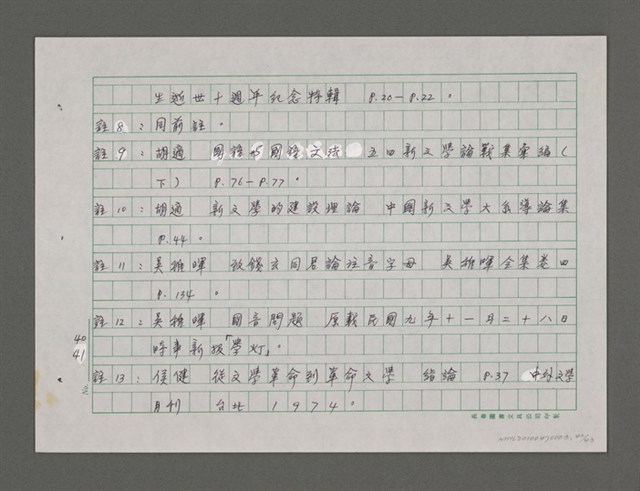 生逝世十週年紀念特輯 P.20—P.22。
註8：同前註。
註9：胡適 國語與國語文法 五四新文學論戰集彙編（
下） P.76—P.77。
註10：胡適 新文學的建設理論 中國新文學大系導論集
P.44。
註11：吳稚暉 致錢玄同君論注音字母 吳稚暉全集卷四
P.134。
註12：吳稚暉 國音問題 原載民國九年十一月二十八日
時事新報「學灯」。
40
41
註13：侯健 從文學革命到革命文學 緒論 P.37 中外文學
月刊 台北 1974。
No.